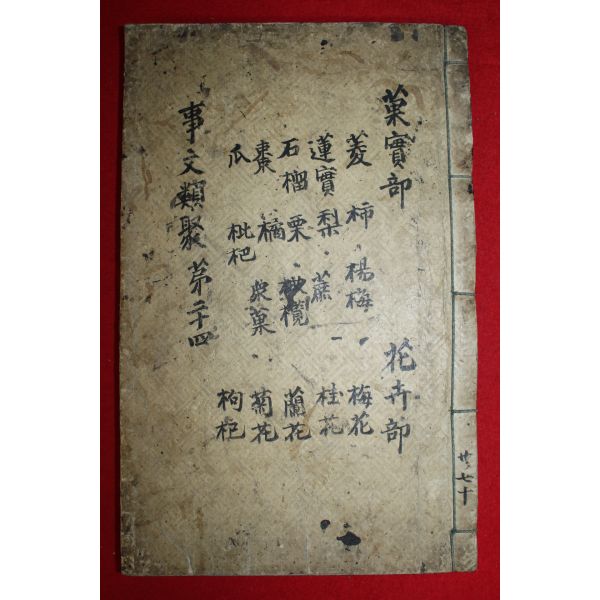 菓實部 花卉部
菱 柿 楊梅 梅花
蓮實 梨 蔗 桂花
石榴 栗 欖 蘭花
棗 橘 衆菓 菊花
瓜 枇杷 枸杞
事文類聚 第二十四
共七十